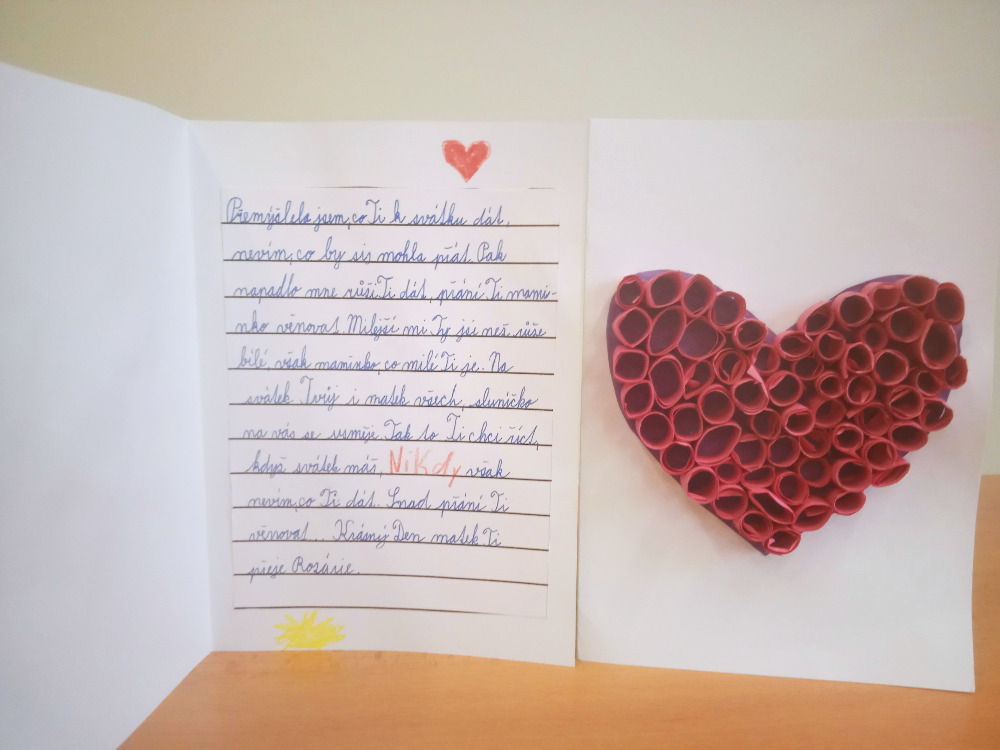 Přemýšlela jsem, co Ti k svátku dát,
nevím, co by sis mohla přát. Pak
napadlo mne růži Ti dát, přání Ti mami-
nko věnovat. Milejší mi Ty jsi než růže
bílé, však maminko, co milé Ti je. Na
svátek Tvůj i matek všech, sluníčko
na vás se usměje. Tak to Ti chci říct,
když svátek máš, Nikdy však
nevím, co Ti dát. Snad přání Ti
věnovat... Krásný Den matek Ti
přeje Rozárie.